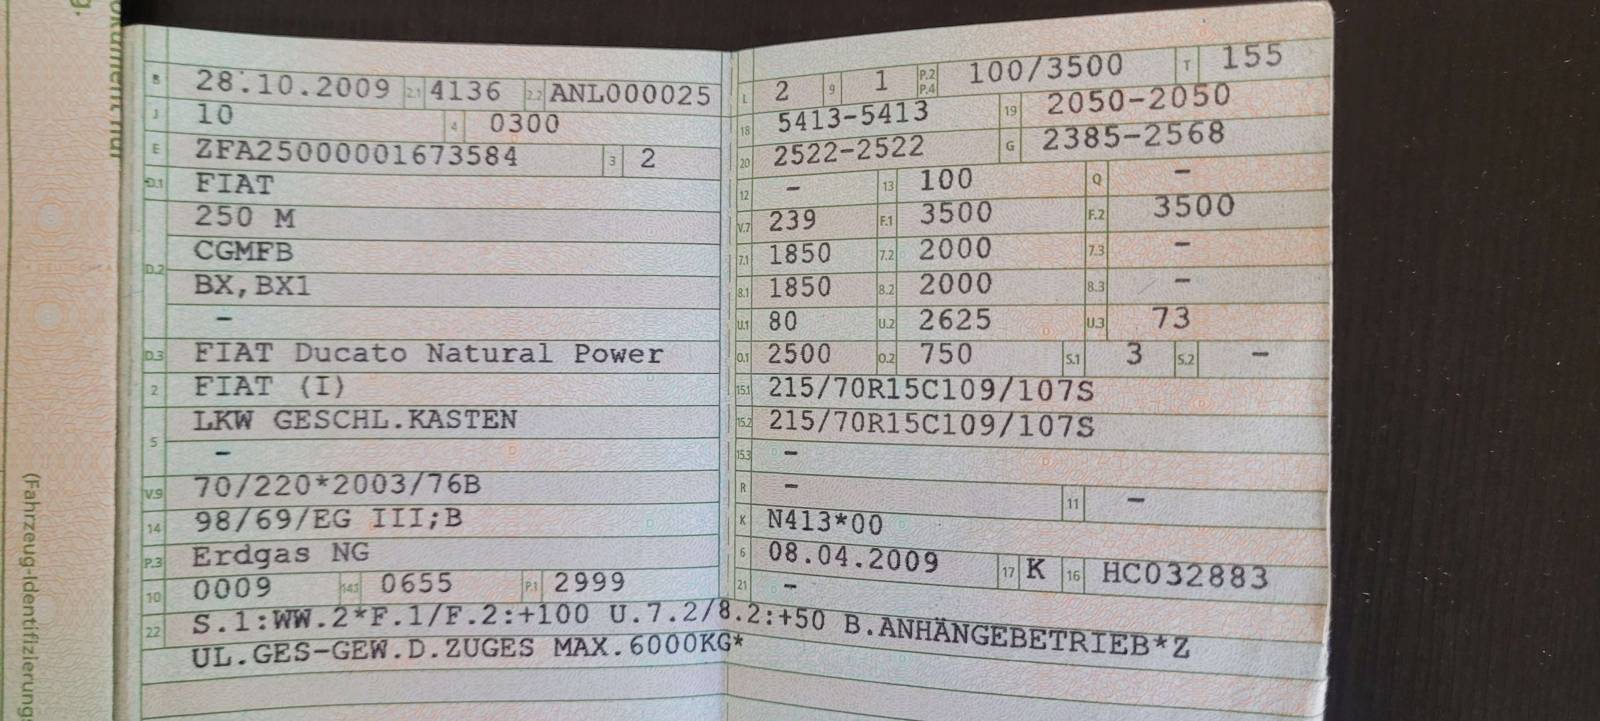 g.
okument für
(Fahrzeug-Identifizierungs
B 28.10.2009 2.1 4136 2.2 ANL000025
J 10 4 0300
E ZFA25000001673584 3 2
D.1 FIAT
250 M
D.2 CGMFB
BX,BX1
–
D.3 FIAT Ducato Natural Power
2 FIAT (I)
5 LKW GESCHL.KASTEN
–
V.9 70/220*2003/76B
14 98/69/EG III;B
P.3 Erdgas NG
10 0009 14.1 0655 P.1 2999
L 2 9 1 P.2 P.4 100/3500 T 155
18 5413-5413 19 2050-2050
20 2522-2522 G 2385-2568
12 – 13 100 Q –
V.7 239 F.1 3500 F.2 3500
7.1 1850 7.2 2000 7.3 –
8.1 1850 8.2 2000 8.3 –
U.1 80 U.2 2625 U.3 73
O.1 2500 O.2 750 S.1 3 S.2 –
15.1 215/70R15C109/107S
15.2 215/70R15C109/107S
15.3 –
R – 11 –
K N413*00
6 08.04.2009 17 K 16 HC032883
21 –
22 S.1:WW.2*F.1/F.2:+100 U.7.2/8.2:+50 B.ANHÄNGEBETRIEB*Z
UL.GES-GEW.D.ZUGES MAX.6000KG*